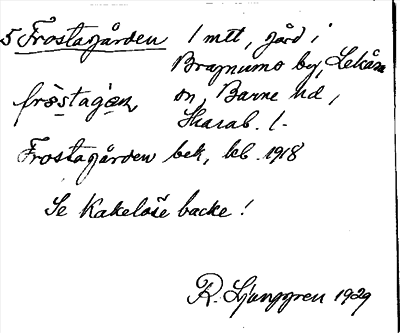 5 Frostagården 1 mtl, gård i
Bragnums by, Lekåsa
frɔ̀stagạn, sn, Barne hd,
Skarab. l.
Frostagården bek, kb. 1918
Se Kakelöse backe!
R. Ljunggren 1929